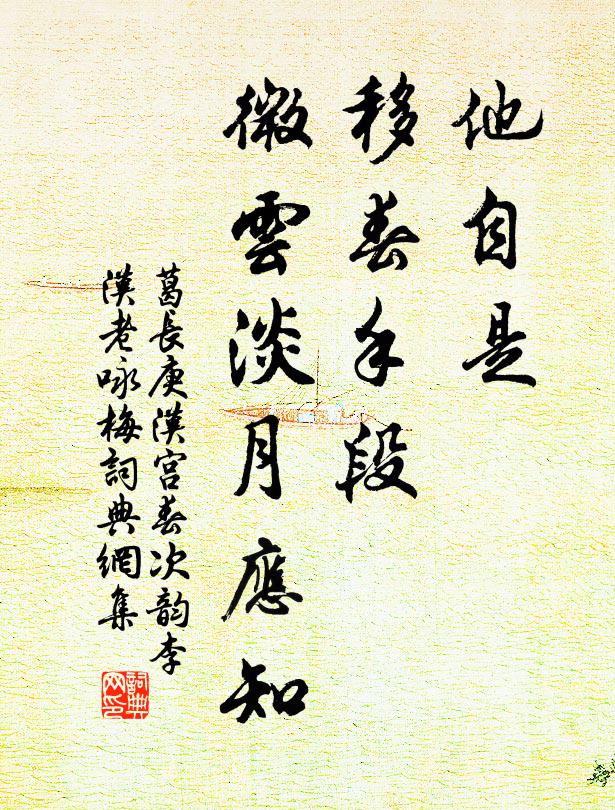 他自是
移春手段
微雲淡月應知
葛長庚漢宮春次韵李
漢老咏梅詞典網集
詞典
网印